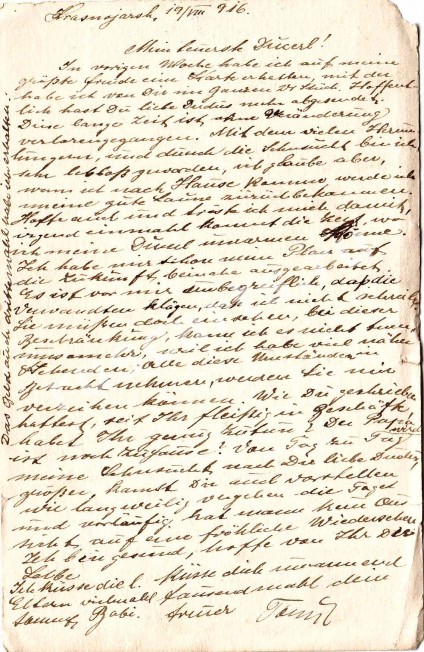 Krasnojarsk, 19/VIII 916.
Mein teuerste Ducerl!
In vorigen Woche habe ich auf meine
größte Freude eine Karte erhalten, mit der
habe ich von Dir im Ganzen 2 Stück. Hoffent-
lich hast Du liebe mehr abgesendet.
Diese lange Zeit ist, ohne Veränderung
verlorengegangen. Mit dem vielen
und durch die Sehnsucht bin ich
sehr geworden, ich glaube aber,
wenn ich nach Hause komme, werde ich
meine gute Laune zurückbekommen.
Hoffe auch und tröste ich mich damit,
irgend einmahl kommt die Zeit, wo
ich meine umarmen könne.
Ich habe mir schon mein Plan auf
die Zukunft, beinahe ausgearbeitet.
Es ist vor mir unbegreiflich, daß die
Verwandten klagen, daß ich nicht schreibe,
Sie müßen doch einsehen, bei dieser
Beschränkung, kann ich es nicht tuen,
umsomehr, weil ich habe viel nahen
Alle diese Umständen in
Betracht nehmen, werden Sie mir
verzeihen können. Wie Du geschrieben
hattest, seit Ihr fleißig in Geschäft,
habet Ihr genug zutun? Der Papa
ist noch Zuhause? Von Tag zu Tag
meine Sehnsucht nach Dir liebe wird
großer, kannst Du auch vorstellen
wie langweilig vergehen die Tage
und vorläufig hat man kein Aus-
sicht, auf eine fröhliche Wiedersehen
Ich bin gesund, hoffe von Ihr Dir
Selbe
Ich küsse die l. Küsse dich umarmend
Eltern vielmahl tausendmahl dein
Babi. treuer
Das Geld auch drittesmahl habe ich erhalten.